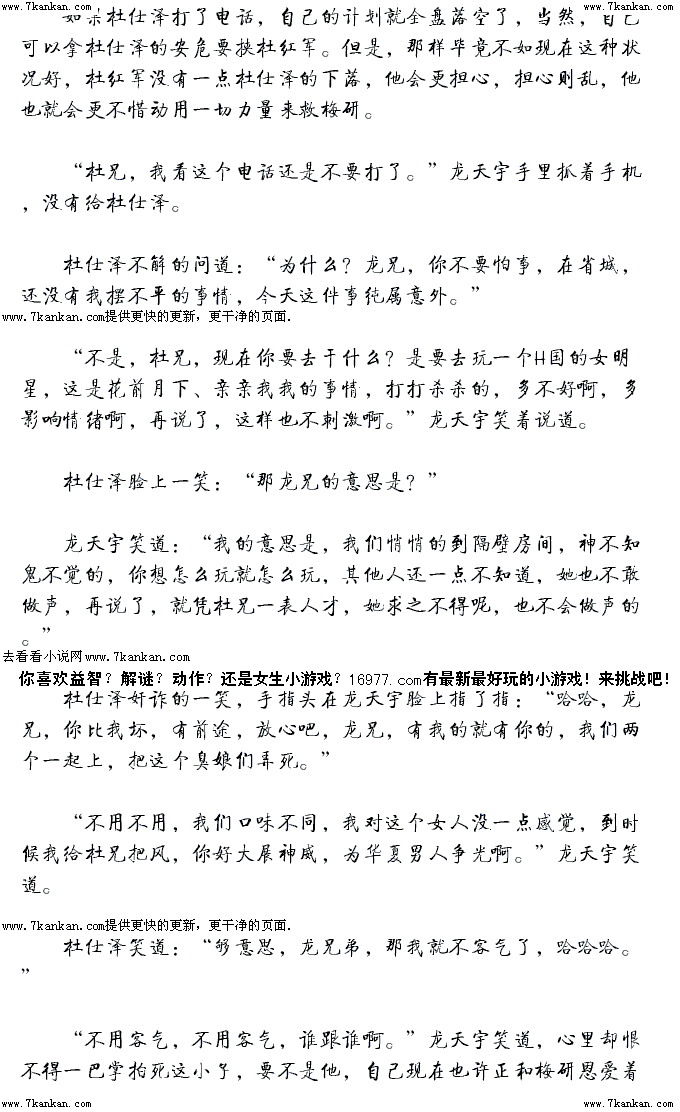 www.7kankan.com www.7kankan.com
如果杜仕泽打了电话，自己的计划就全盘落空了，当然，自己
可以拿杜仕泽的安危要挟杜红军。但是，那样毕竟不如现在这种状
况好，杜红军没有一点杜仕泽的下落，他会更担心，担心则乱，他
也就会更不惜动用一切力量来救梅研。
“杜兄，我看这个电话还是不要打了。”龙天宇手里抓着手机
，没有给杜仕泽。
杜仕泽不解的问道：“为什么？龙兄，你不要怕事，在省城，
还没有我摆不平的事情，今天这件事纯属意外。”
www.7kankan.com提供更快的更新，更干净的页面.
“不是，杜兄，现在你要去干什么？是要去玩一个H国的女明
星，这是花前月下、亲亲我我的事情，打打杀杀的，多不好啊，多
影响情绪啊，再说了，这样也不刺激啊。”龙天宇笑着说道。
杜仕泽脸上一笑：“那龙兄的意思是？”
龙天宇笑道：“我的意思是，我们悄悄的到隔壁房间，神不知
鬼不觉的，你想怎么玩就怎么玩，其他人还一点不知道，她也不敢
做声，再说了，就凭杜兄一表人才，她求之不得呢，也不会做声的
。”
去看看小说网www.7kankan.com
你喜欢益智？解谜？动作？还是女生小游戏？16977.com有最新最好玩的小游戏！来挑战吧！
杜仕泽奸诈的一笑，手指头在龙天宇脸上指了指：“哈哈，龙
兄，你比我坏，有前途，放心吧，龙兄，有我的就有你的，我们两
个一起上，把这个臭娘们弄死。”
“不用不用，我们口味不同，我对这个女人没一点感觉，到时
候我给杜兄把风，你好大展神威，为华夏男人争光啊。”龙天宇笑
道。
www.7kankan.com提供更快的更新，更干净的页面.
杜仕泽笑道：“够意思，龙兄弟，那我就不客气了，哈哈哈。
”
“不用客气，不用客气，谁跟谁啊。”龙天宇笑道，心里却恨
不得一巴掌拍死这小子，要不是他，自己现在也许正和梅研恩爱着
www.7kankan.com www.7kankan.com